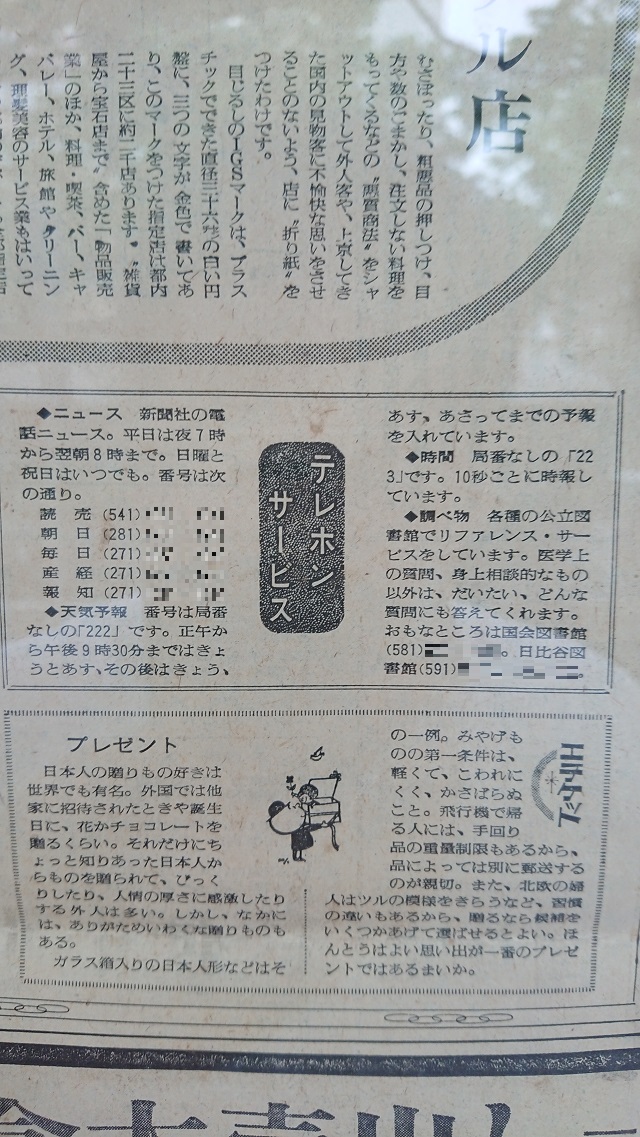 ル店
むさぼったり、粗悪品の押しつけ、目
方や数のごまかし、注文しない料理を
もってくるなどの〝悪質商法〟をシャ
ットアウトして外人客や、上京してき
た国内の見物客に不愉快な思いをさせ
ることのないよう、店に〝折り紙〟を
つけたわけです。
目じるしのIGSマークは、プラス
チックでできた直径三十六㌢の白い円
盤に、三つの文字が金色で書いてあ
り、このマークをつけた指定店は都内
二十三区に約二千店あります。〝雑貨
屋から宝石店まで〟含めた「物品販売
業」のほか、料理・喫茶、バー、キャ
バレー、ホテル、旅館やクリーニン
グ、理髪美容のサービス業もはいって
テレホン
サービス
◆ニュース 新聞社の電
話ニュース。平日は夜7時
から翌朝8時まで。日曜と
祝日はいつでも。番号は次
の通り。
読売(541)
朝日(281)
毎日(271)
産経(271)
報知(271)
◆天気予報 番号は局番
なしの「222」です。正午か
ら午後9時30分まではきょ
うとあす、その後はきょう、
あす、あさってまでの予報
を入れています。
◆時間 局番なしの「22
3」です。10秒ごとに時報し
ています。
◆調べ物 各種の公立図
書館でリファレンス・サー
ビスをしています。医学上
の質問、身上相談的なもの
以外は、だいたい、どんな
質問にも答えてくれます。
おもなところは国会図書館
(581)。日比谷図
書館(591)。
エチケット
プレゼント
日本人の贈りもの好きは
世界でも有名。外国では他
家に招待されたときや誕生
日に、花かチョコレートを
贈るくらい。それだけにち
ょっと知りあった日本人か
らものを贈られて、びっく
りしたり、人情の厚さに感激したり
する外人は多い。しかし、なかに
は、ありがためいわくな贈りものも
ある。
ガラス箱入りの日本人形などはそ
の一例。みやげも
のの第一条件は、
軽くて、こわれに
くく、かさばらぬ
こと。飛行機で帰
る人には、手回り
品の重量制限もあるから、
品によっては別に郵送する
のが親切。また、北欧の婦
人はツルの模様をきらうなど、習慣
の違いもあるから、贈るなら候補を
いくつかあげて選ばせるとよい。ほ
んとうはよい思い出が一番のプレゼ
ントではあるまいか。